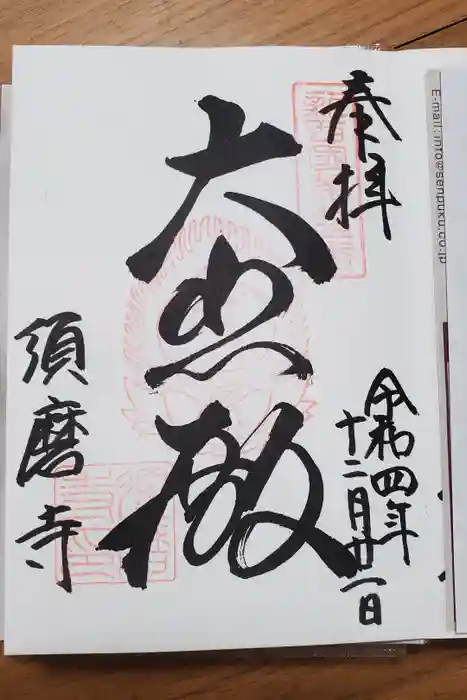 奉拝
令和四年
十二月廿一日
大悲殿
須磨寺
E-mail: info@senpuku.co.jp